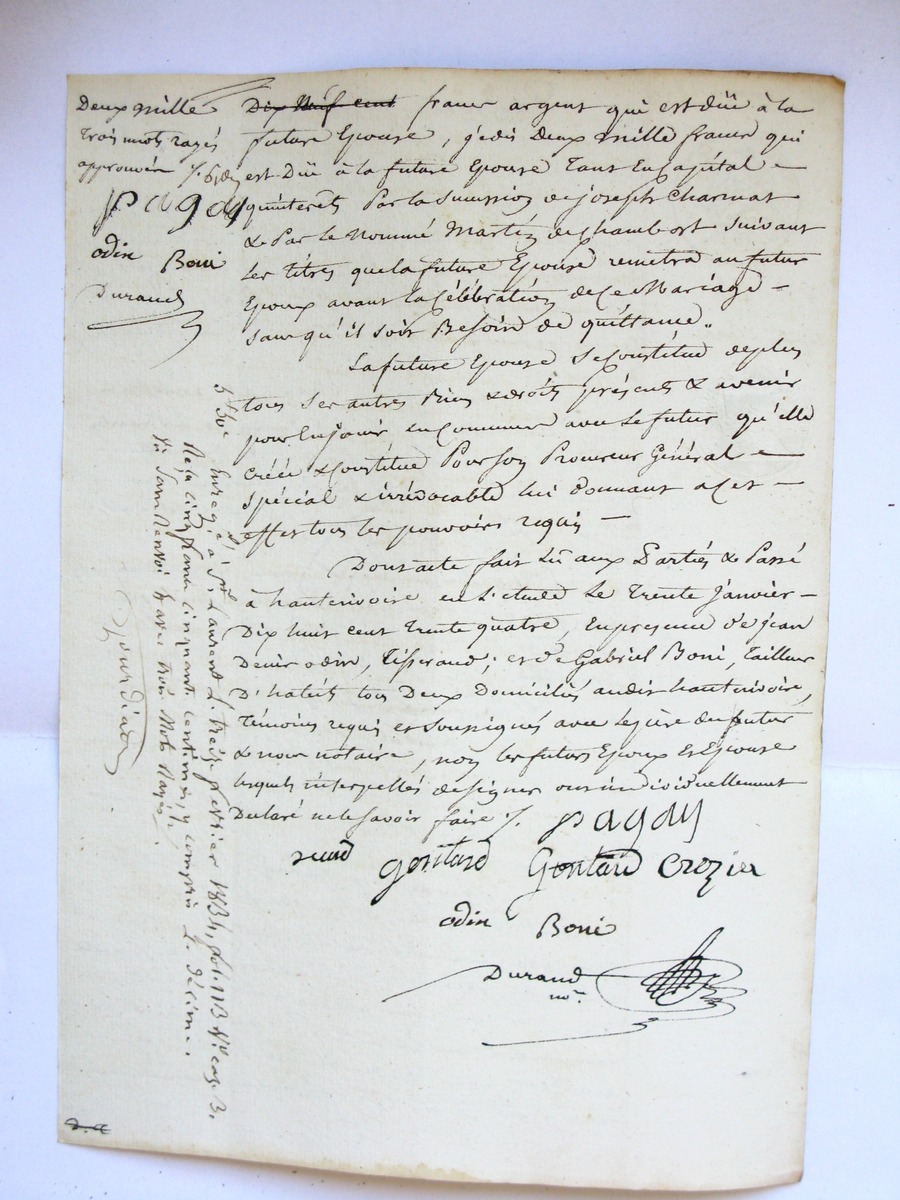 Deux mille
trois mots rayés
approuvés
Pagay
odin Boni
Durand
Dix Neuf cent francs argent qui est düe à la
future Epouse, je dis Deux mille francs qui
est Düe à la future Epouse Tant En capital
qu'interets Par la succession de joseph Charmat
& Par le Nommé Martin de chambost suivant
les titres que la future Epouse remettra au futur
Epoux avant la Célébration de Ce Mariage
sans qu'il soit Besoin de quittance.
La future Epouse Se Constitue de plus
tous ses autres Biens & droits présents & avenir
pour En jouir en Commun avec le futur qu'elle
Créée & Constitue Pour son Procureur Général
spécial & irrévocable lui donnant a cet
effet tous les pouvoirs requis
Dont acte fait Lû aux Parties & Passé
à hauterivoire en L'étude Le Trente Janvier
Dix huit cent Trente quatre, En presence de jean
Denis odin, Tisserand, et de Gabriel Boni, Tailleur
D'habits tous Deux Domiciliés audit hauterivoire,
Témoins requis et soussignés avec le père du futur
& nous notaire, non les futurs Epoux Et Epouse
lesquels interpellés de signer ont individuellement
Declaré ne le savoir faire
Pagay
gontard Gontard Crozier
odin Boni
Durand
no.re
Enreg.é à S.t Laurent L. treize fevrier 1834, fol. 113 V.o cas. 3.
Reçu cinq francs cinquante centimes, y compris L. décime.
Vû sans Renvoi & avec trois Mots Rayés.
Jourdian